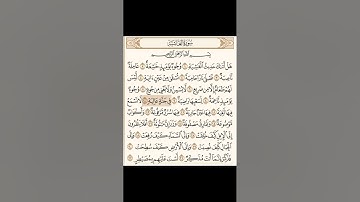 سُورَةُ الغَاشِيَةِ
بِسْمِ اللَّهِ الرَّحْمَٰنِ الرَّحِيمِ
هَلْ أَتَىٰكَ حَدِيثُ ٱلْغَٰشِيَةِ ١ وُجُوهٌ يَوْمَئِذٍ خَٰشِعَةٌ ٢ عَامِلَةٌ
نَّاصِبَةٌ ٣ تَصْلَىٰ نَارًا حَامِيَةً ٤ تُسْقَىٰ مِنْ عَيْنٍ ءَانِيَةٍ ٥ لَّيْسَ
لَهُمْ طَعَامٌ إِلَّا مِن ضَرِيعٍ ٦ لَّا يُسْمِنُ وَلَا يُغْنِى مِن جُوعٍ ٧ وُجُوهٌ
يَوْمَئِذٍ نَّاعِمَةٌ ٨ لِّسَعْيِهَا رَاضِيَةٌ ٩ فِى جَنَّةٍ عَالِيَةٍ ١٠ لَّا تَسْمَعُ
فِيهَا لَٰغِيَةً ١١ فِيهَا عَيْنٌ جَارِيَةٌ ١٢ فِيهَا سُرُرٌ مَّرْفُوعَةٌ ١٣ وَأَكْوَابٌ
مَّوْضُوعَةٌ ١٤ وَنَمَارِقُ مَصْفُوفَةٌ ١٥ وَزَرَابِىُّ مَبْثُوثَةٌ ١٦ أَفَلَا يَنظُرُونَ
إِلَى ٱلْإِبِلِ كَيْفَ خُلِقَتْ ١٧ وَإِلَى ٱلسَّمَآءِ كَيْفَ رُفِعَتْ ١٨ وَإِلَى
ٱلْجِبَالِ كَيْفَ نُصِبَتْ ١٩ وَإِلَى ٱلْأَرْضِ كَيْفَ سُطِحَتْ ٢٠
فَذَكِّرْ إِنَّمَآ أَنتَ مُذَكِّرٌ ٢١ لَّسْتَ عَلَيْهِم بِمُصَيْطِرٍ ٢٢